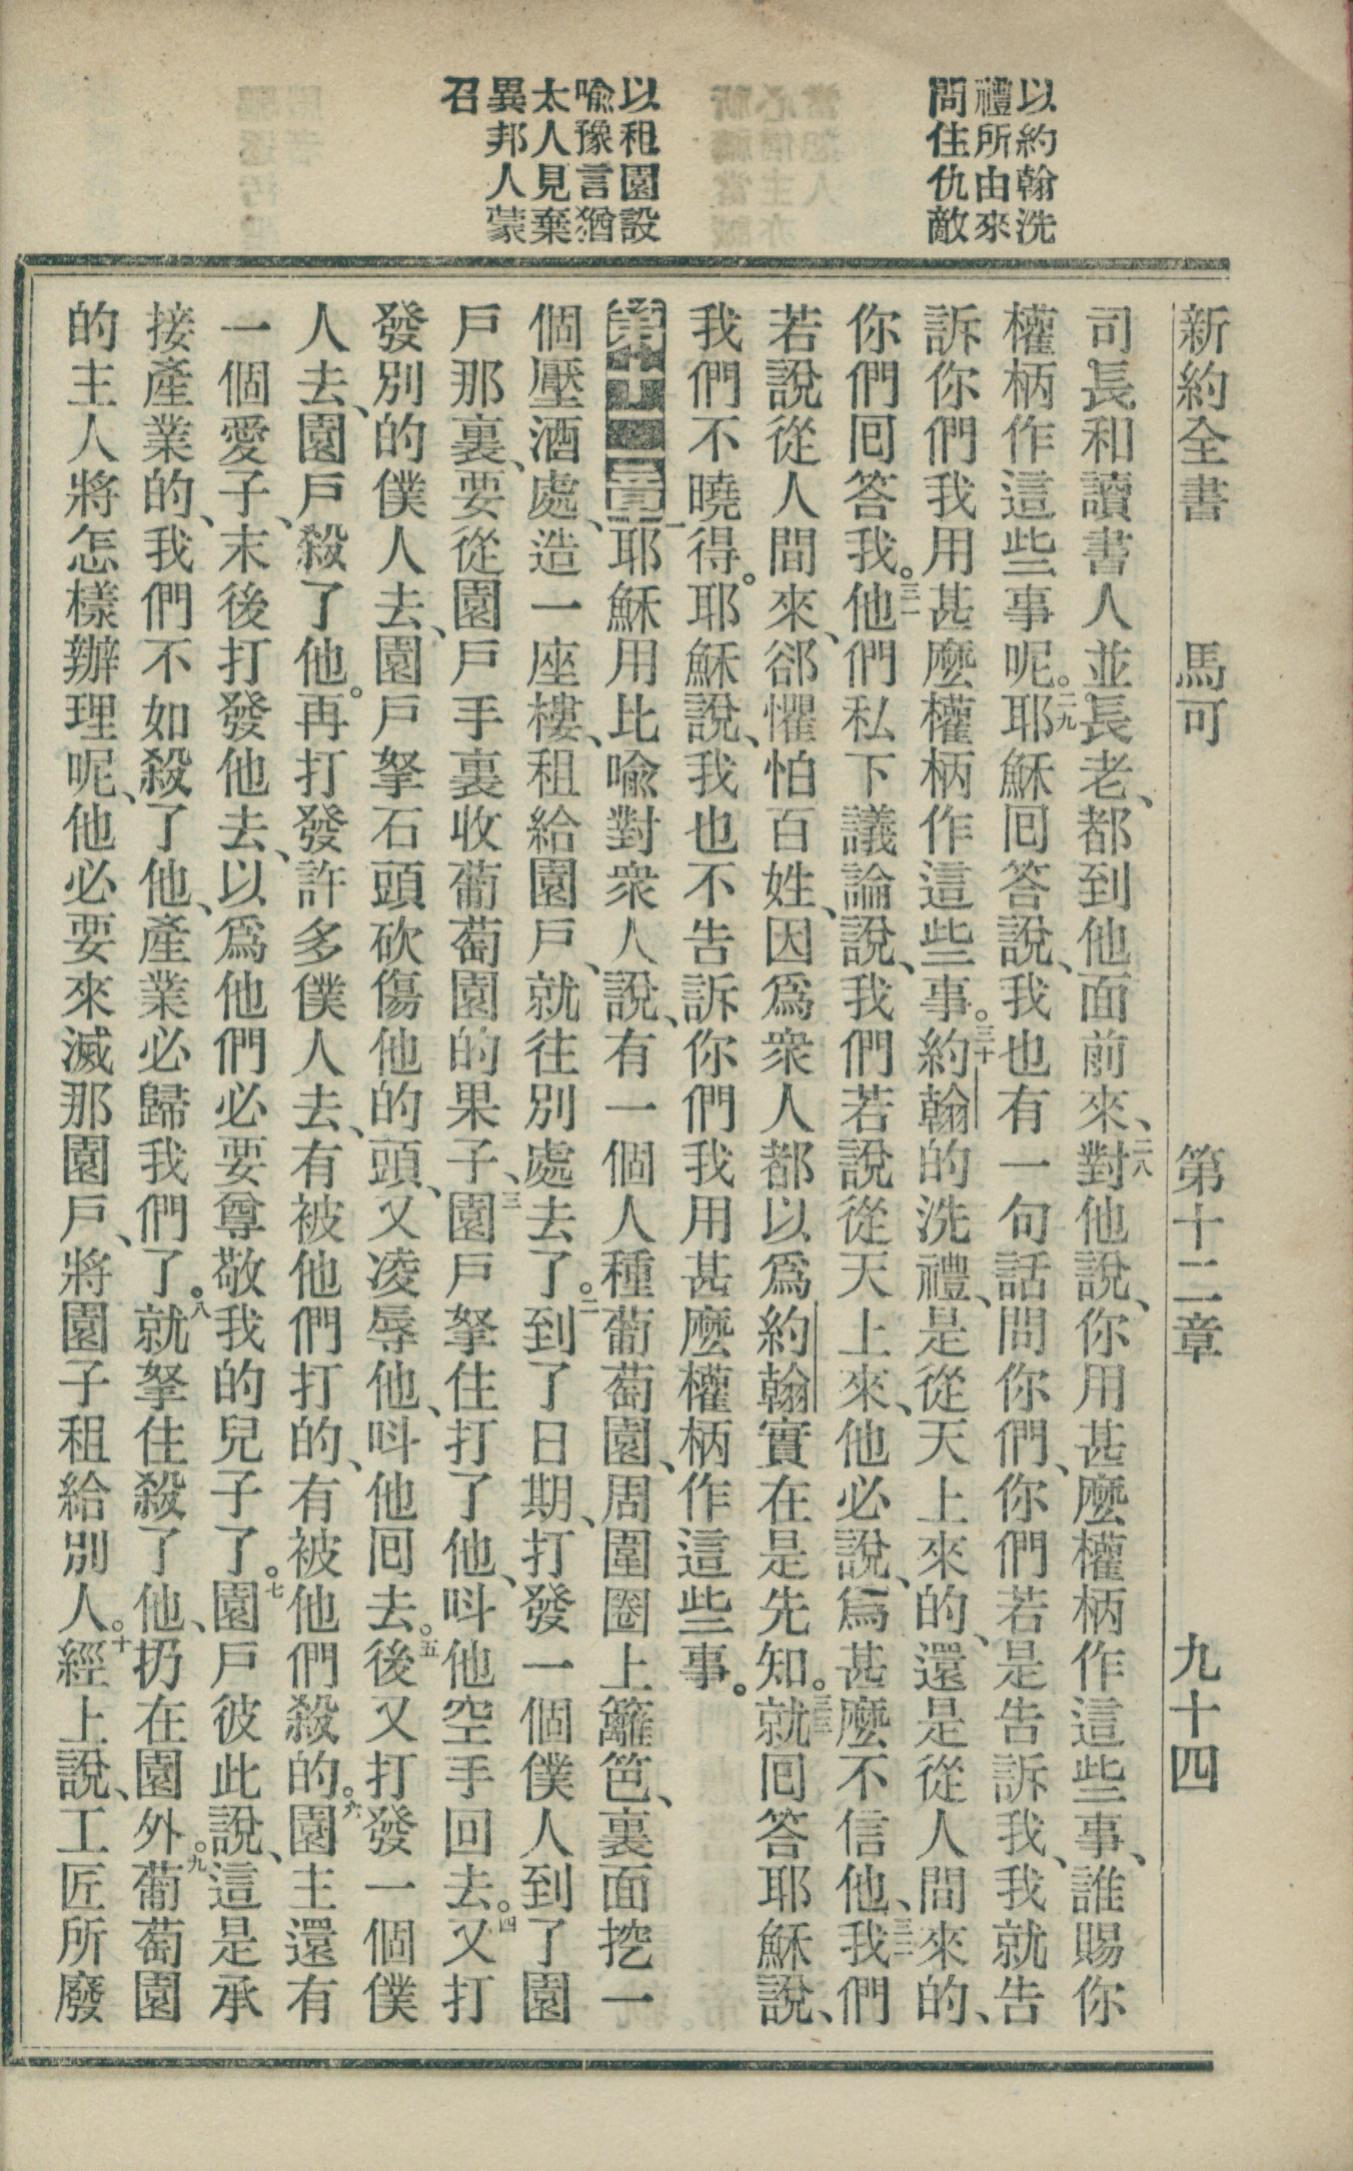 以約翰洗
禮所由來
問住仇敵
以租園設
喻豫言猶
太人見棄
異邦人蒙
召
新約全書 馬可 第十二章 九十四
司長和讀書人並長老、都到他面前來、二八對他說、你用甚麼權柄作這些事、誰賜你
權柄作這些事呢。二九耶穌囘答說、我也有一句話問你們、你們若是告訴我、我就告
訴你們我用甚麼權柄作這些事。三十約翰的洗禮、是從天上來的、還是從人間來的、
你們囘答我。三一他們私下議論說、我們若說從天上來、他必說、爲甚麼不信他、三二我們
若說從人間來、郤懼怕百姓、因爲衆人都以爲約翰實在是先知。三三就囘答耶穌說、
我們不曉得。耶穌說、我也不告訴你們我用甚麼權柄作這些事。
第十二章一耶穌用比喩對衆人說、有一個人種葡萄園、周圍圈上籬笆、裏面挖一
個壓酒處、造一座樓、租給園戶、就往別處去了。二到了日期、打發一個僕人到了園
戶那裏、要從園戶手裏收葡萄園的果子、三園戶拏住打了他、呌他空手回去。四又打
發別的僕人去、園戶拏石頭砍傷他的頭、又凌辱他、呌他囘去。五後又打發一個僕
人去、園戶殺了他。再打發許多僕人去、有被他們打的、有被他們殺的。六園主還有
一個愛子、末後打發他去、以爲他們必要尊敬我的兒子了。七園戶彼此說、這是承
接產業的、我們不如殺了他、產業必歸我們了。八就拏住殺了他、扔在園外。九葡萄園
的主人將怎樣辦理呢、他必要來滅那園戶、將園子租給別人。十經上說、工匠所廢